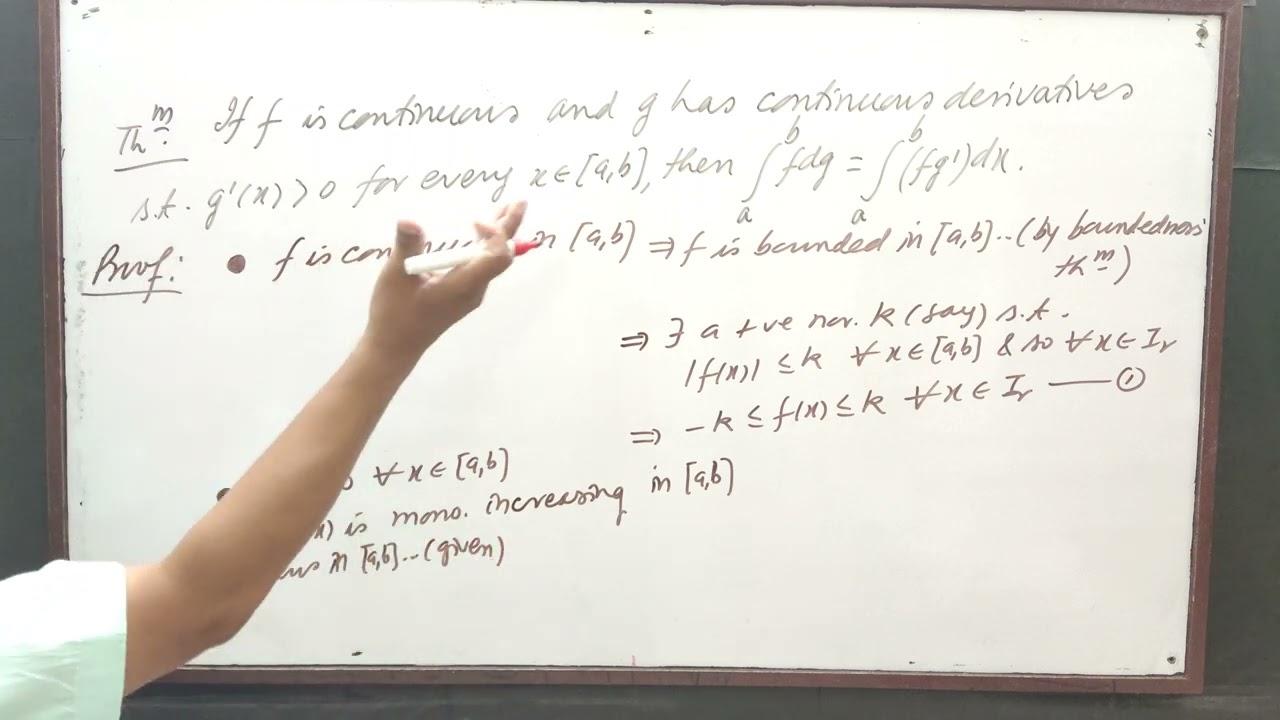 Th^m If f is continuous and g has continuous derivatives
s.t. g'(x) > 0 for every x ∈ [a,b], then ∫_a^b f dg = ∫_a^b (fg') dx.
Proof: • f is in [a,b] ⇒ f is bounded in [a,b]..(by boundedness
th^m)
⇒ ∃ a +ve no. k (say) s.t.
|f(x)| ≤ k ∀ x ∈ [a,b] & so ∀ x ∈ I_r
⇒ -k ≤ f(x) ≤ k ∀ x ∈ I_r — ①
∀ x ∈ [a,b]
is mono. increasing in [a,b]
in [a,b]..(given)